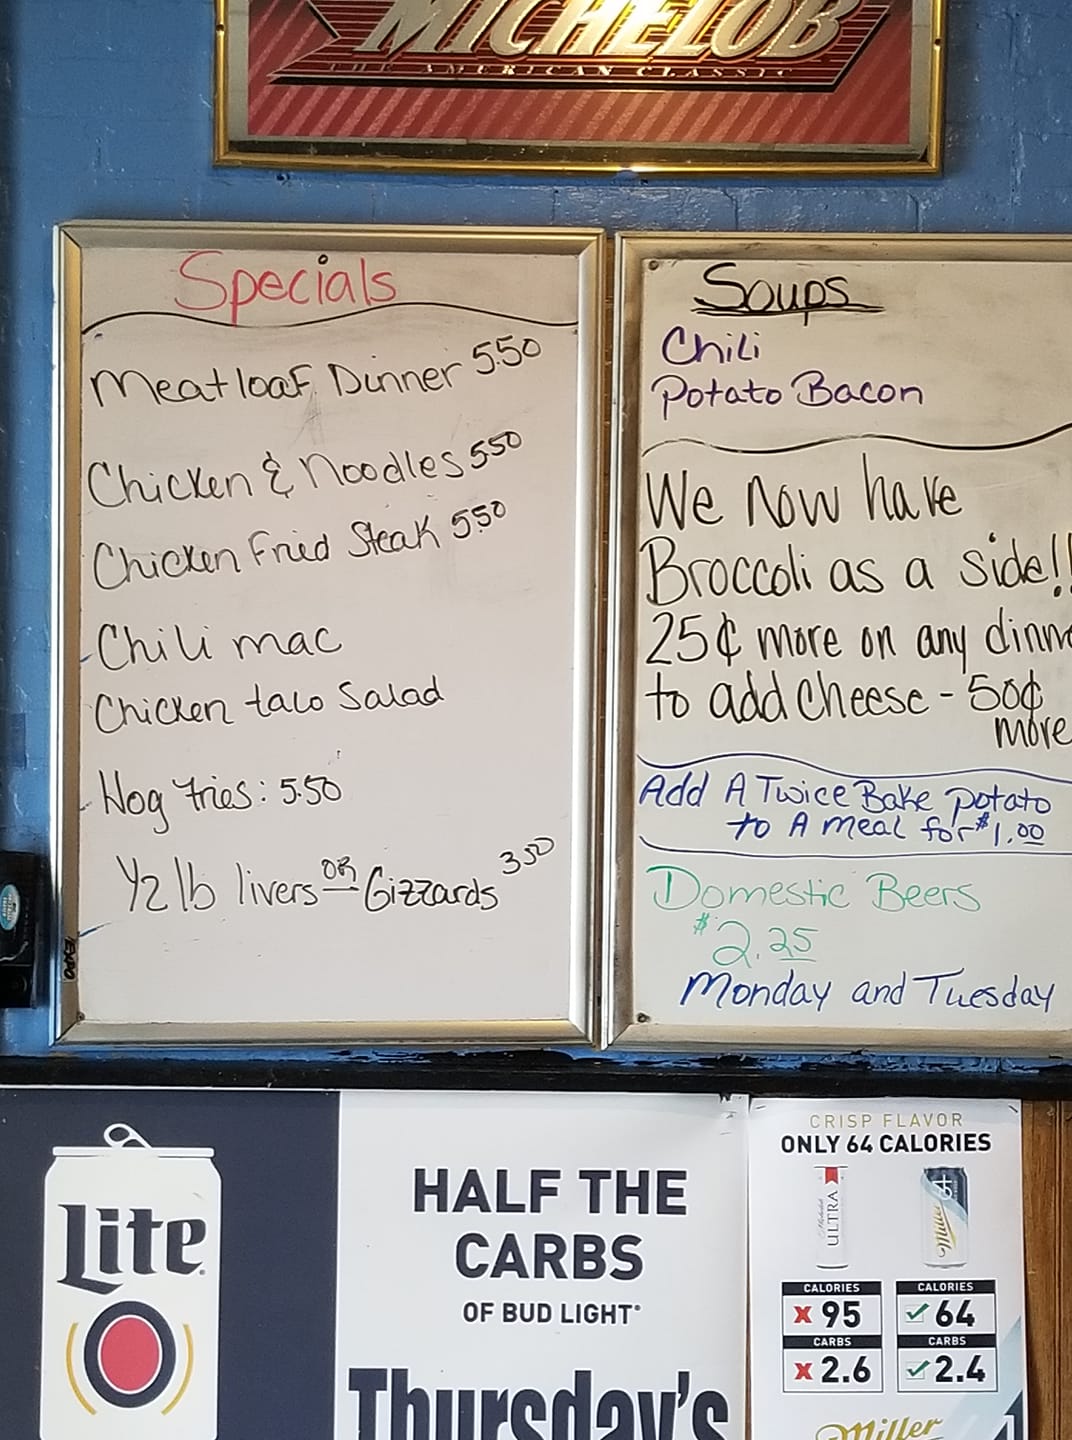 MICHELOB
THE AMERICAN CLASSIC
Specials
Meatloaf Dinner 5.50
Chicken & Noodles 5.50
Chicken Fried Steak 5.50
Chili mac
Chicken taco Salad
Hog fries: 5.50
1/2 lb livers OR Gizzards 3.50
EXPO
Soups
Chili
Potato Bacon
We Now have
Broccoli as a side!!
25¢ more on any dinne
to add cheese - 50¢
more
Add A Twice Bake potato
to A meal for $1.00
Domestic Beers
$2.25
Monday and Tuesday
Lite
HALF THE
CARBS
OF BUD LIGHT*
Thursday's
CRISP FLAVOR
ONLY 64 CALORIES
Michelob ULTRA
Miller 64
CALORIES CALORIES
X 95 ✓ 64
CARBS CARBS
X 2.6 ✓ 2.4
Miller